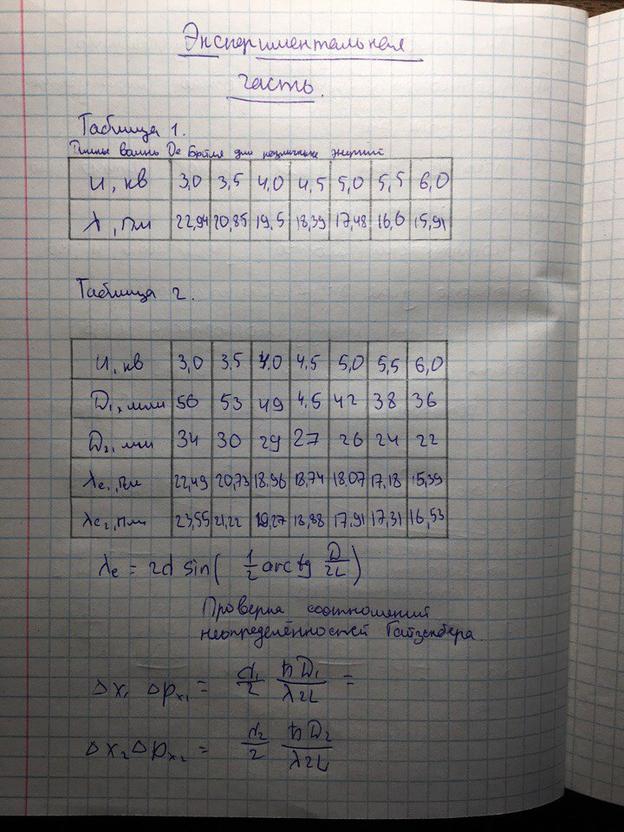 Экспериментальная
часть.
Таблица 1.
Длины волны Де Бройля для различных энергий
U, кв 3,0 3,5 4,0 4,5 5,0 5,5 6,0
λ, пм 22,94 20,85 19,5 18,39 17,48 16,6 15,91
Таблица 2.
U, кв 3,0 3,5 4,0 4,5 5,0 5,5 6,0
D₁, мм 56 53 49 4,5 42 38 36
D₂, мм 34 30 29 27 26 24 22
λe₁, пм 22,49 20,73 18,96 18,74 18,07 17,18 15,39
λe₂, пм 23,55 21,22 19,27 18,88 17,91 17,31 16,53
λe = 2d sin( 1/2 arctg D/2L )
Проверка соотношений
неопределённостей Гайзенбера.
Δx₁ Δpx₁ = d₁/2 ħD₁/λ2L =
Δx₂ Δpx₂ = d₂/2 ħD₂/λ2L